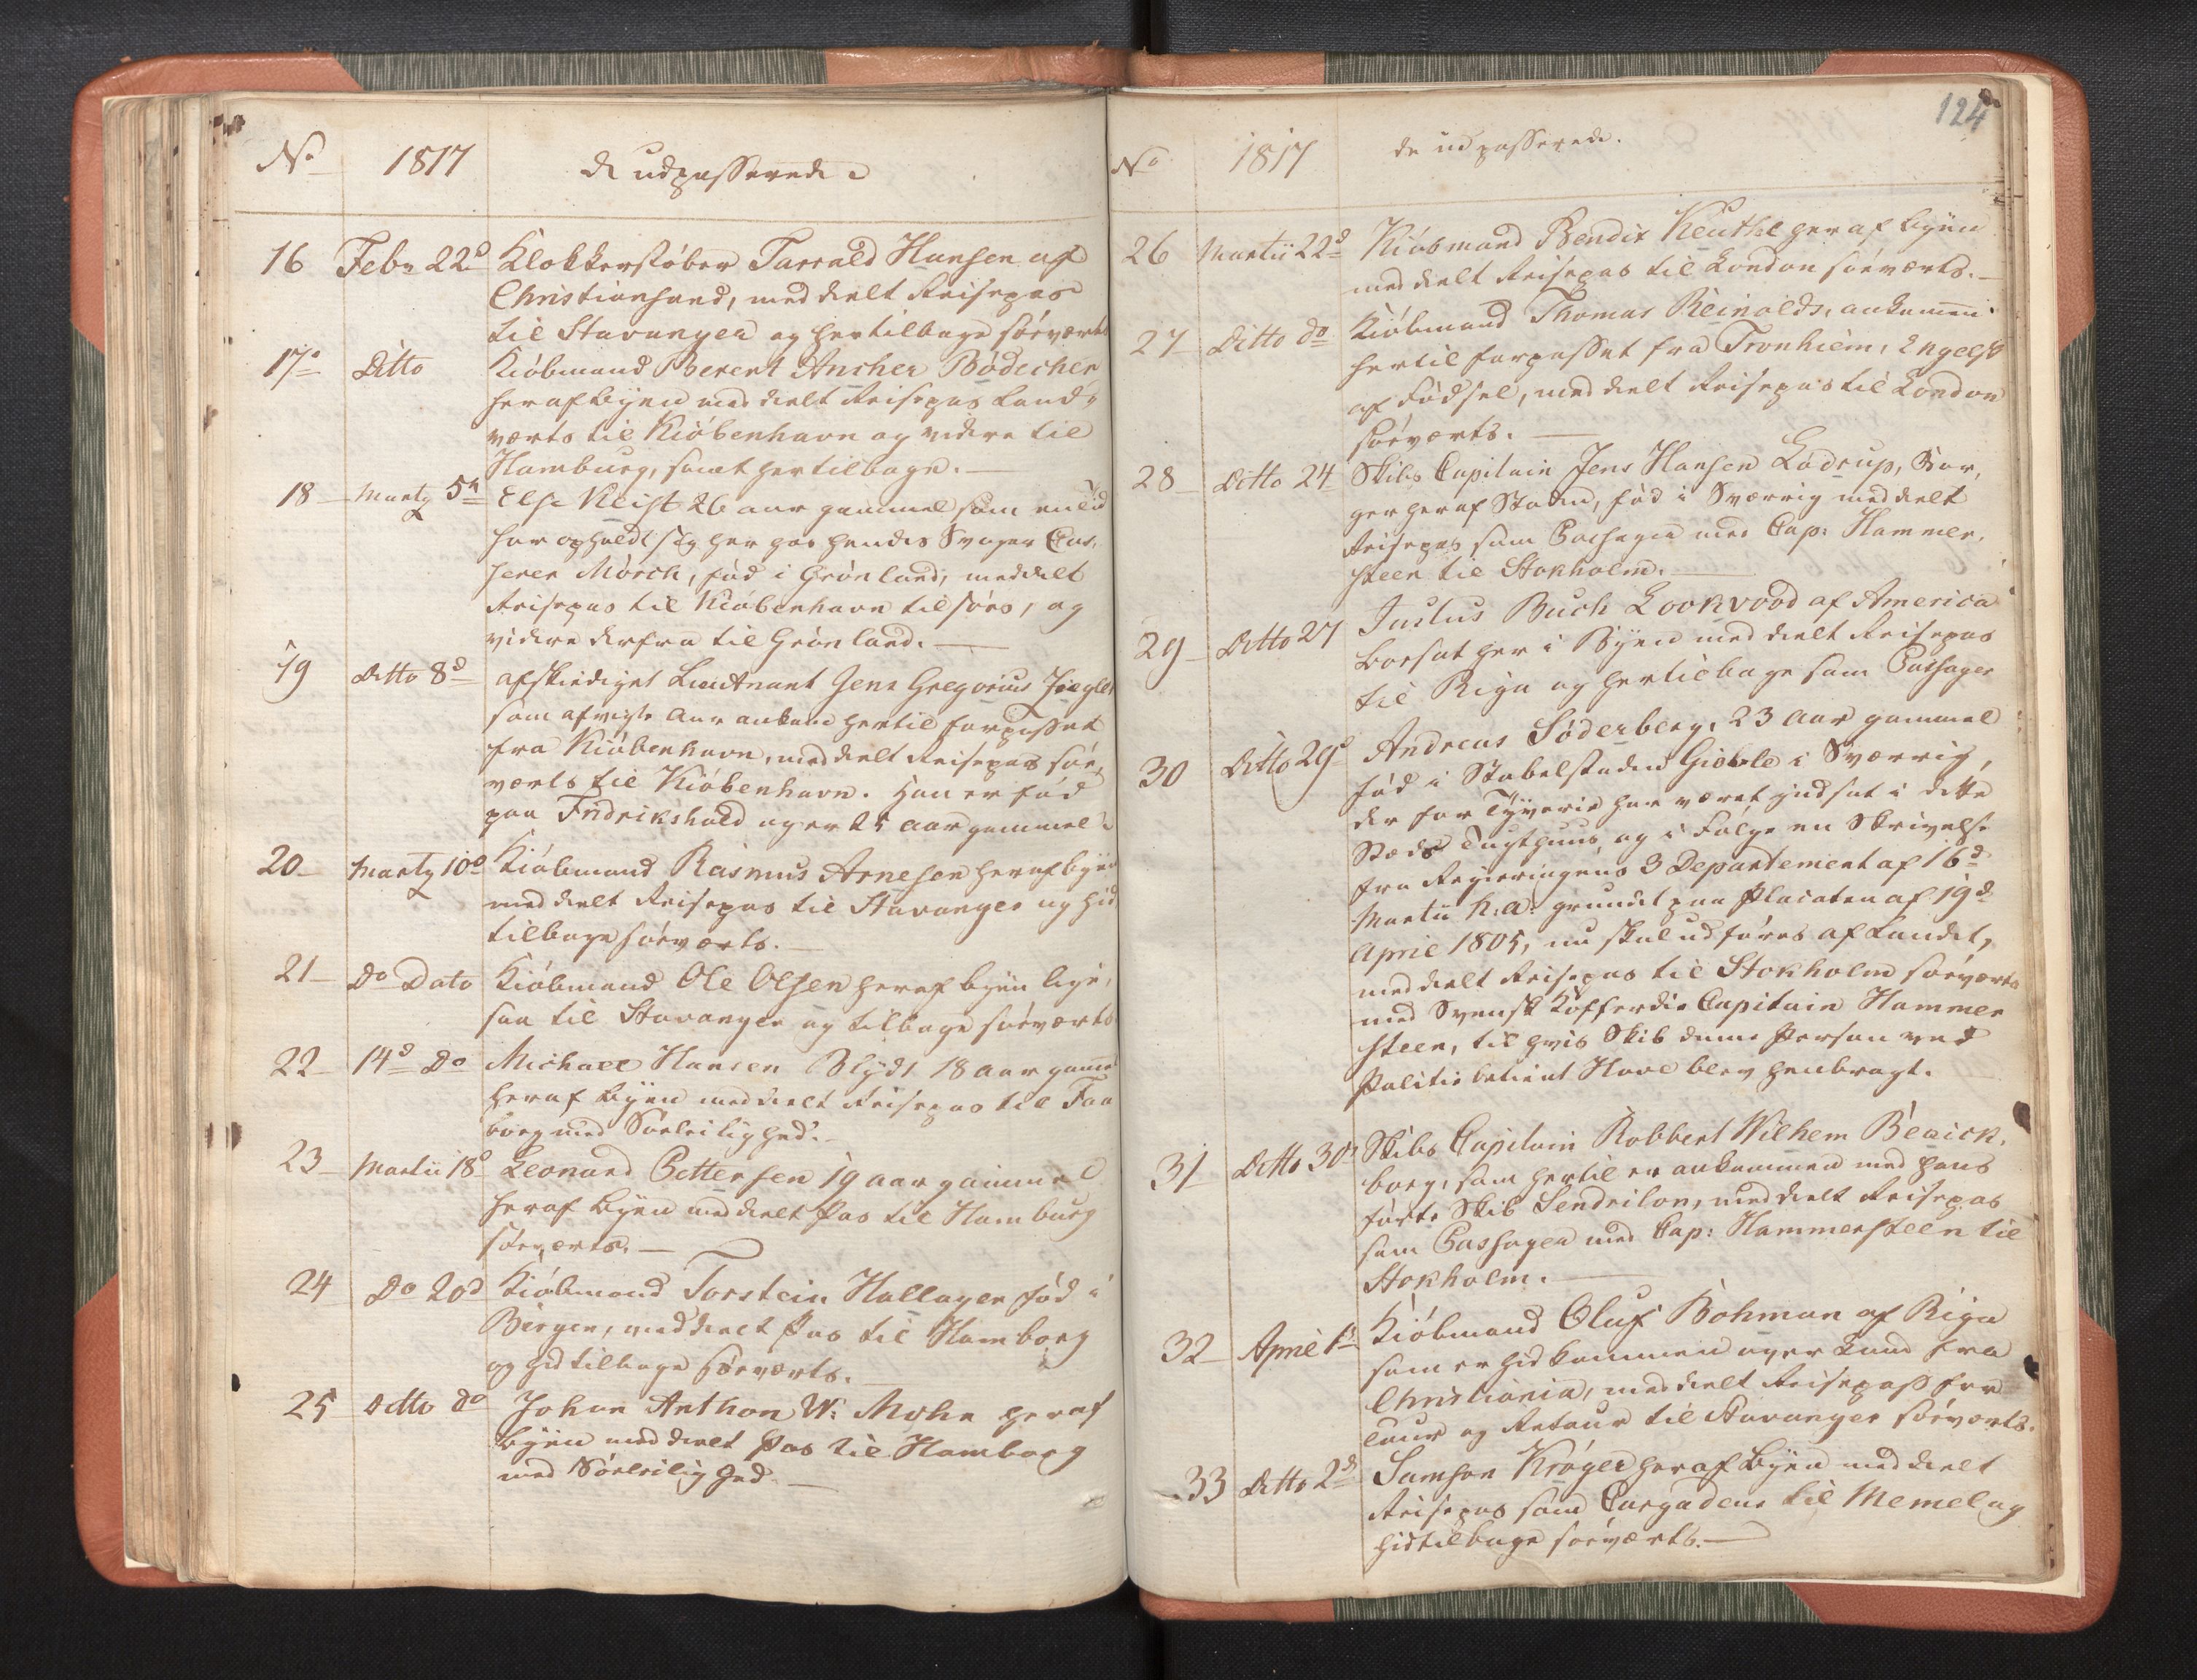 No 1817 de udpasserede
16 Febr 22d Klokkerstøber Tarrald Hansen af
Christiansand, meddelt Reisepas
til Stavanger og hertilbage søeværts
17de Ditto Kiøbmand Berent Ancher Bødecher
her af Byen meddelt Reisepas Land,
værts til Kiøbenhavn og videre til
Hamburg, samt hertilbage. —
18 Martz 5te Else Kleist 26 aar gammel som en tid
har opholdt sig her hos hendes Svoger Cas,
serer Mörch, fød i Grønland, meddelt
Reisepas til Kiøbenhavn til søes, og
videre derfra til Grønland. —
19 Ditto 8d afskediget Lieutnant Jens Gregorius Ziegler
som afvigte Aar ankom hertil forpasset
fra Kiøbenhavn, meddelt Reisepas søe,
værts til Kiøbenhavn. Han er fød
paa Fridrikshald og er 25 Aar gammel
20 Martz 10d Kiøbmand Rasmus Arnesen her af byen
meddelt Reisepas til Stavanger og hid
tilbage søeværts. —
21 Do Dato Kiøbmand Ole Olsen her af byen lige,
saa til Stavanger og tilbage søeværts
22 14d Do Michael Hansen Blydt 18 aar gammel
her af Byen meddelt Reisepas til Faa
borg med Søeleilighed. —
23 Martii 18d Leonard Pettersen 19 aar gammel
her af Byen meddelt Pas til Hamburg
søeværts. —
24 Do 20d Kiøbmand Torstein Hallager fød i
Bergen, meddelt Pas til Hamborg
og hidtilbage søeværts.
25 Ditto do Johan Anthon W: Mohn her af
Byen meddelt Pas til Hamborg
med Søeleilighed. —
124
No 1817 de udpasserede.
26 Martii 22d Kiøbmand Bendix Keuthel her af byen
meddelt Reisepas til London søeværts. —
27 Ditto do Kiøbmand Thomas Reinolds, ankommen
hertil forpasset fra Tronhiem, Engelsk
af Fødsel, meddelt Reisepas til London
søeværts. —
28 Ditto 24 Skibs Capitain Jens Hansen Lødrup, Bor,
ger her af Staden, fød i Sverrig meddelt
Reisepas som Passager med Cap: Hammer,
steen til Stokholm. —
29 Ditto 27 Justus Buch Lookvood af America
bosat her i Byen meddelt Reisepas
til Riga og hertilbage som Passager
30 Ditto 29d Andreas Söderberg, 23 Aar gammel
fød i Stabelstaden Giefle i Sverrig,
der for Tyverie har været indsat i dette
Stæds Tugthuus, og i Følge en Skrivelse
fra Regieringens 3 Departement af 16d
Martii h: a: grundet paa Placaten af 19d
April 1805, nu skal udføres af Landet,
meddelt Reisepas til Stokholm søeværts
med Svensk Kofferdie Capitain Hammer
steen, til hvis Skib denne Person ved
Politiebetient Hove blev henbragt.
31 Ditto 30d Skibs Capitain Robbert Wilhem Beaick,
borg, som hertil er ankommen med hans
førte Skib Sendrilon, meddelt Reisepas
som Passager med Cap: Hammersteen til
Stokholm. —
32 April 1te Kiøbmand Oluf Bohman af Riga
som er hid kommen over Land fra
Christiania, meddelt Reisepass for
Tour og Retour til Stavanger søeværts.
33 Ditto 2d Samson Krøger her af Byen meddelt
Reisepas som Cargadeur til Memel og
hidtilbage søeværts. —